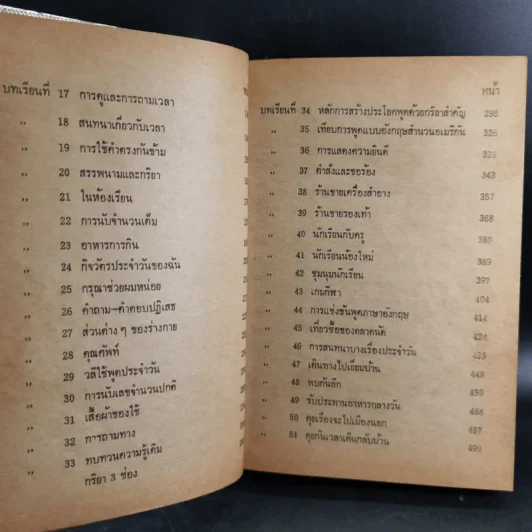 บทเรียนที่ 17 การดูและการถามเวลา
" 18 สนทนาเกี่ยวกับเวลา
" 19 การใช้คำตรงกันข้าม
" 20 สรรพนามและกริยา
" 21 ในห้องเรียน
" 22 การนับจำนวนเต็ม
" 23 อาหารการกิน
" 24 กิจวัตรประจำวันของฉัน
" 25 กรุณาช่วยผมหน่อย
" 26 คำถาม-คำตอบปฏิเสธ
" 27 ส่วนต่าง ๆ ของร่างกาย
" 28 คุณศัพท์
" 29 วลีใช้พูดประจำวัน
" 30 การนับเลขจำนวนปกติ
" 31 เสื้อผ้าของใช้
" 32 การถามทาง
" 33 ทบทวนความรู้เดิม
กริยา 3 ช่อง
หน้า
บทเรียนที่ 34 หลักการสร้างประโยคพูดด้วยกริยาสำคัญ 298
" 35 เทียบการพูดแบบอังกฤษสำนวนอเมริกัน 326
" 36 การแสดงความยินดี
" 37 คำสั่งและขอร้อง 343
" 38 ร้านขายเครื่องสำอาง 357
" 39 ร้านขายรองเท้า 368
" 40 นักเรียนกับครู 380
" 41 นักเรียนน้องใหม่ 389
" 42 ชุมนุมนักเรียน 397
" 43 เกมกีฬา 404
" 44 การแข่งขันพูดภาษาอังกฤษ 414
" 45 เที่ยวซื้อของตลาดนัด 424
" 46 การสนทนาบางเรื่องประจำวัน 438
" 47 เดินทางไปเยี่ยมบ้าน 448
" 48 พบกันอีก 459
" 49 รับประทานอาหารกลางวัน 468
" 50 คุยเรื่องจะไปเมืองนอก 487
" 51 คุยกันเวลาเดินกลับบ้าน 499